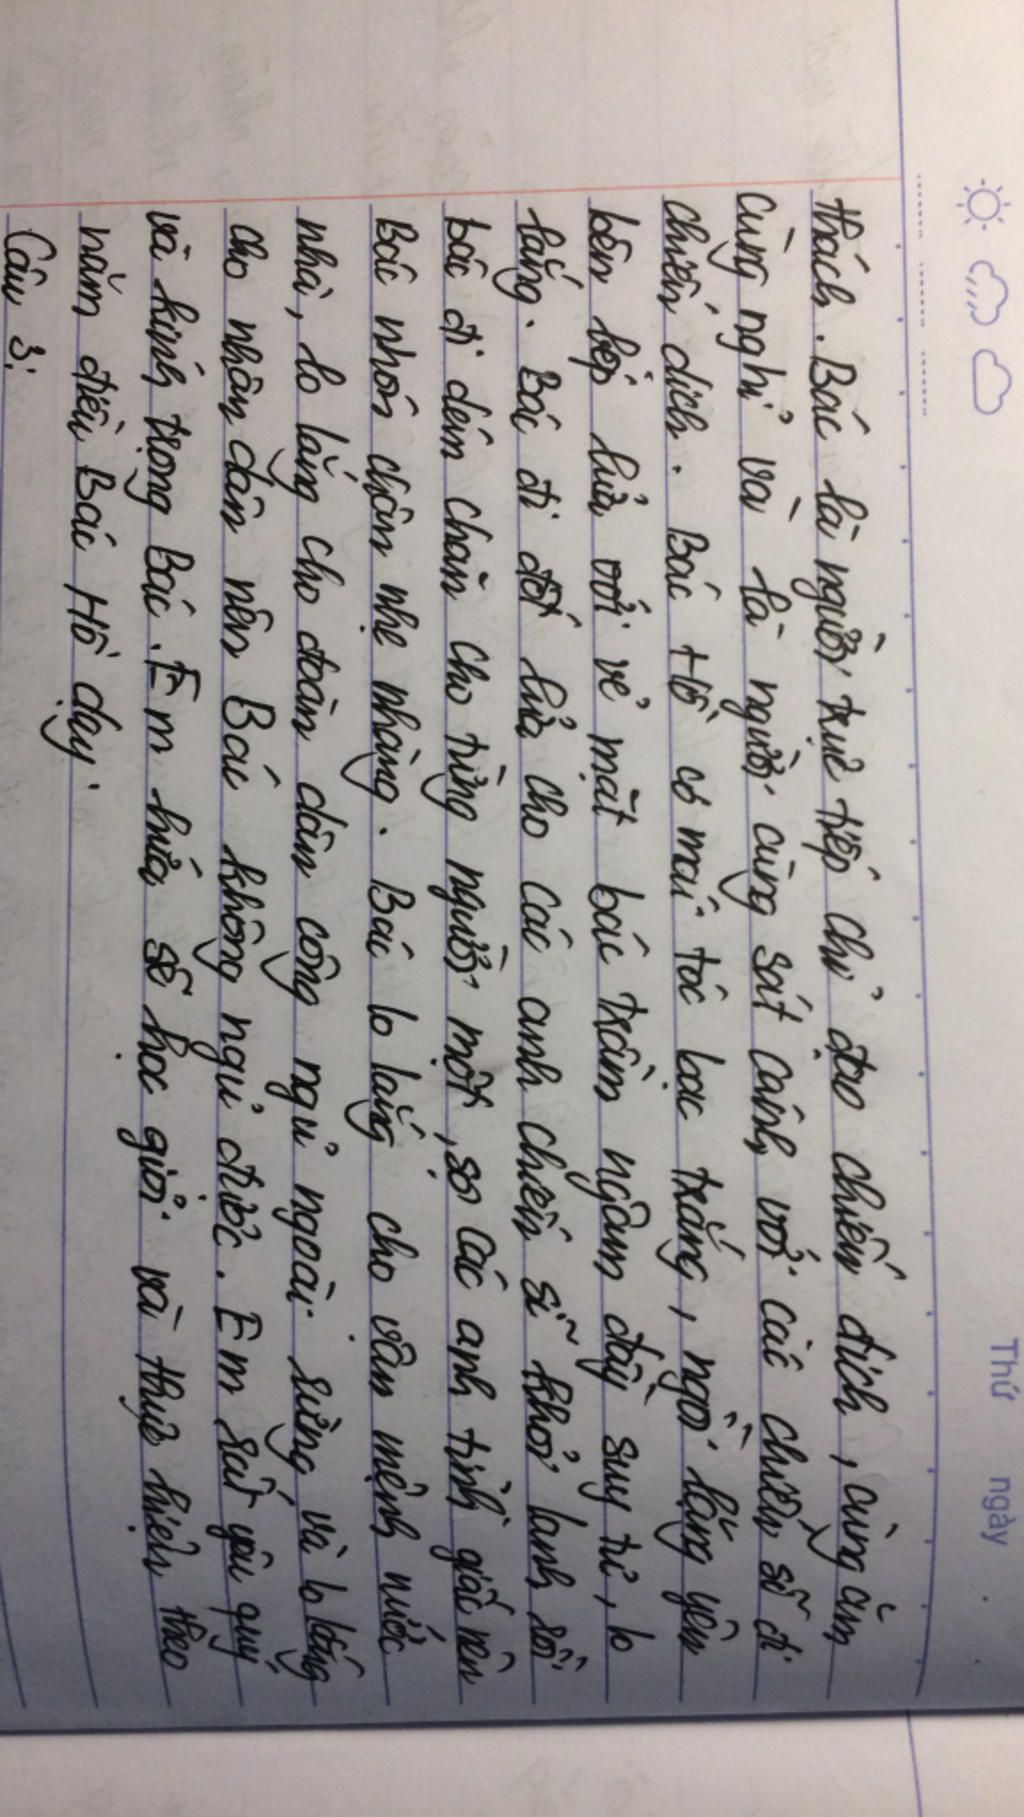 Thứ ngày
thách. Bác là người trực tiếp chỉ đạo chiến dịch, cùng ăn
cùng nghỉ và là người cùng sát cánh với các chiến sĩ đi
chiến dịch. Bác Hồ có mái tóc bạc trắng, ngồi lặng yên
bên bếp lửa với vẻ mặt bác trầm ngâm đầy suy tư, lo
lắng. Bác đi đốt lửa cho các anh chiến sĩ khỏi lạnh, rồi
bác đi dém chăn cho từng người một, sợ các anh tỉnh giấc nên
Bác nhón chân nhẹ nhàng. Bác lo lắng cho vận mệnh nước
nhà, lo lắng cho đoàn dân công ngủ ngoài rừng và lo lắng
cho nhân dân nên Bác không ngủ được. Em rất yêu quý
và kính trọng Bác. Em hứa sẽ học giỏi và thực hiện theo
năm điều Bác Hồ dạy.
Câu 3: